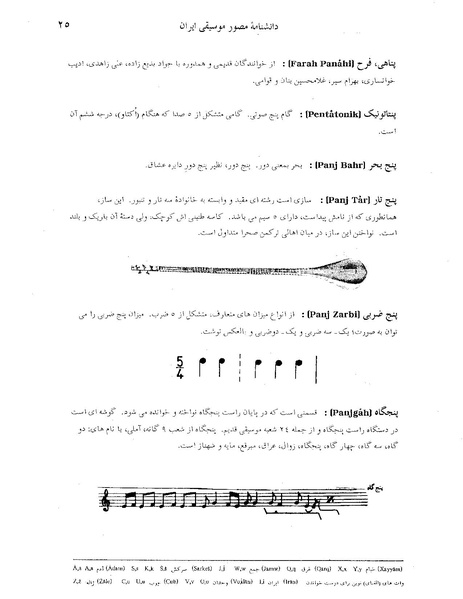 دانشنامهٔ مصور موسیقی ایران
۲۵
پناهی، فرح [Farah Panåhi] : از خوانندگان قدیمی و همدوره با جواد بدیع زاده، علی زاهدی، ادیب
خوانساری، بهرام سیر، غلامحسین بنان و قوامی.
پنتاتونیک [Pentåtonik] : گام پنج صوتی. گامی متشکل از ۵ صدا که هنگام (اُکتاو)، درجه ششم آن
است.
پنج بحر [Panj Bahr] : بحر بمعنی دور. پنج دور، نظیر پنج دورِ دایره عشاق.
پنج تار [Panj Tår] : سازی است رشته ای مقید و وابسته به خانوادهٔ سه تار و تنبور. این ساز،
همانطوری که از نامش پیداست، دارای ۵ سیم می باشد. کاسه طنینی اش کوچک ولی دستهٔ آن باریک و بلند
است. نواختن این ساز، در میان اهالی ترکمن صحرا متداول است.
پنج ضربی [Panj Zarbi] : از انواع میزان های متعارف، متشکل از ۵ ضرب. میزان پنج ضربی را می
توان به صورت؛ یک سه ضربی و یک دوضربی و بالعکس نوشت.
5
4
پنجگاه [Panjgåh] : قسمتی است که در پایان راست پنجگاه نواخته و خوانده می شود. گوشه ای است
در دستگاه راست پنجگاه و از جمله ۲٤ شعبه موسیقی قدیم. پنجگاه از شعب ۹ گانه، آملی، با نام های: دو
گاه، سه گاه، چهار گاه، پنجگاه، زوال، عراق، مبرقع، مایه و شهناز است.
پنج گاه